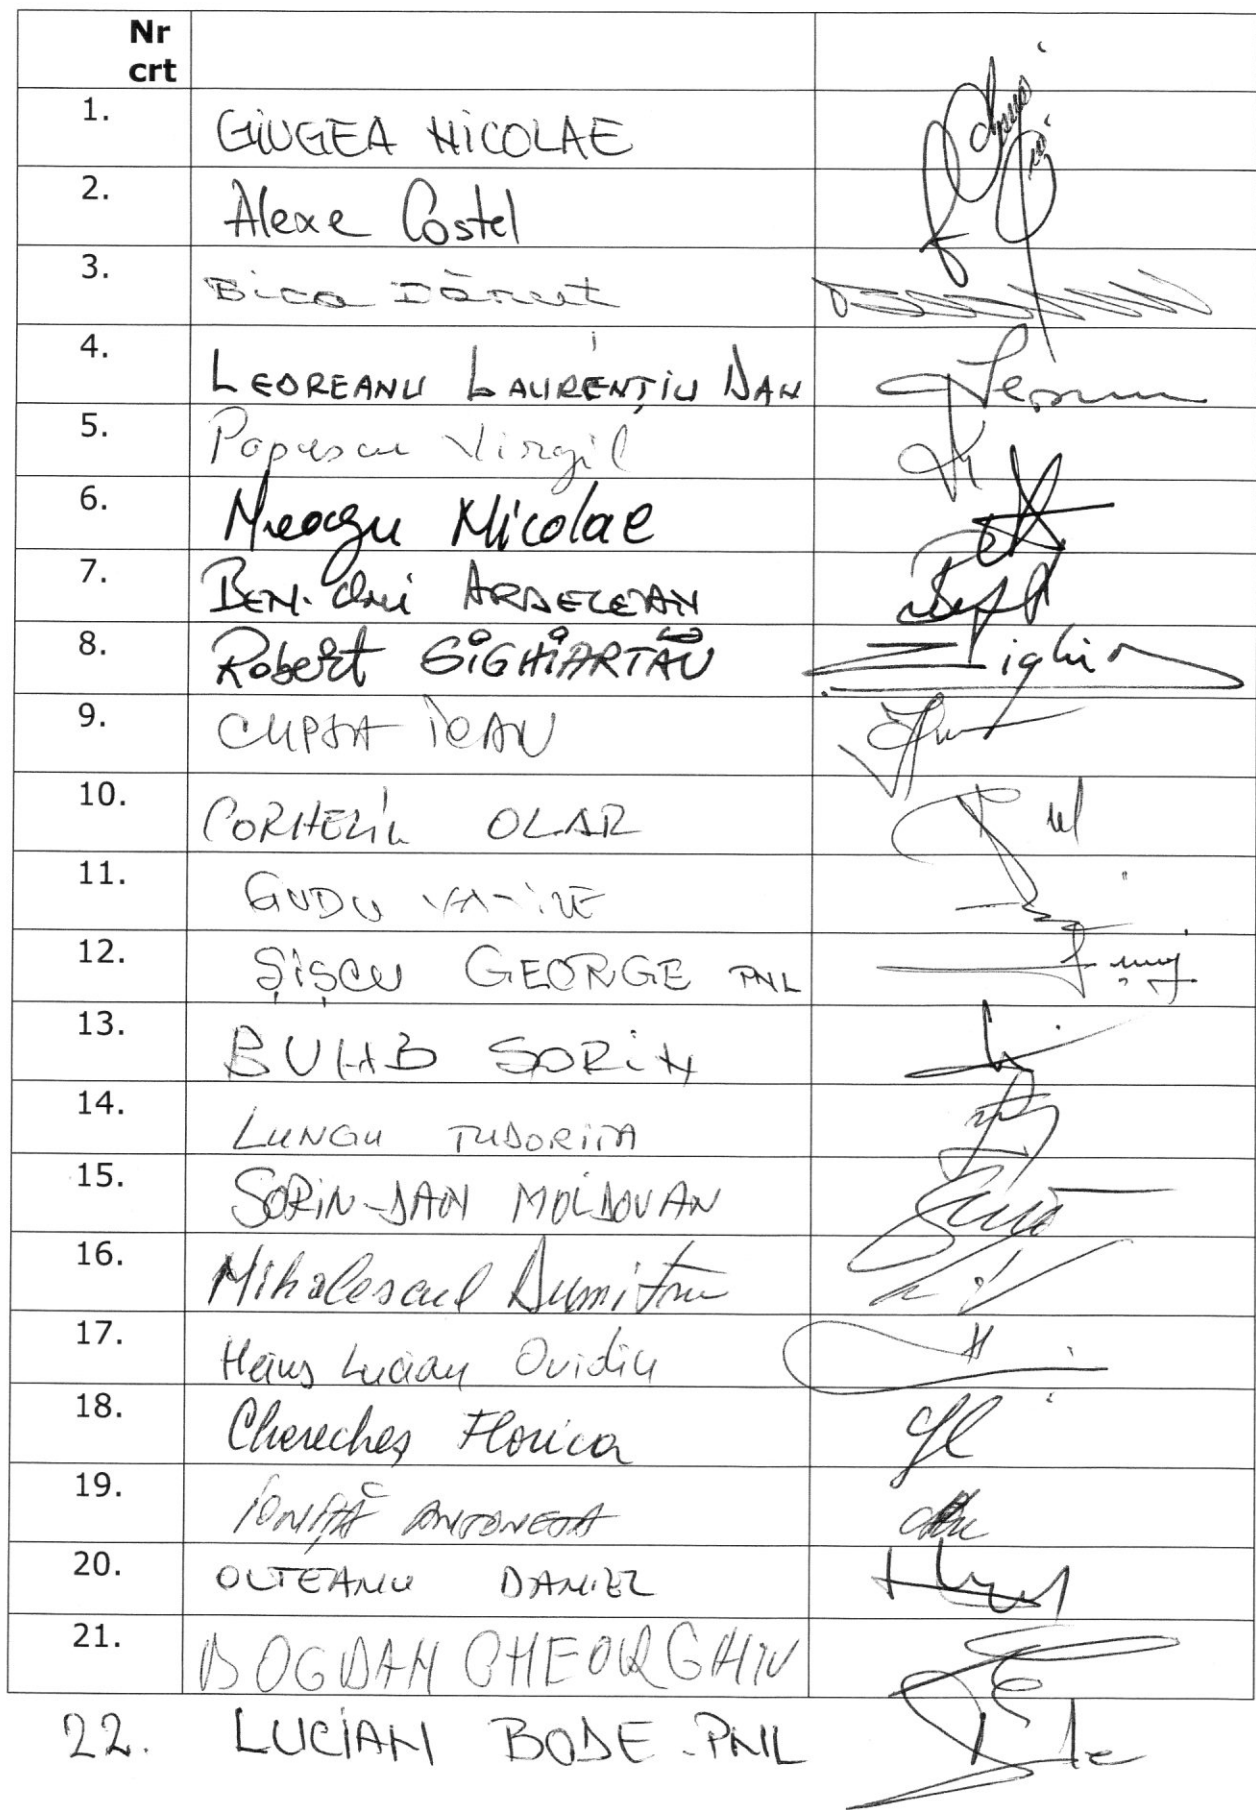 Nr
crt
1. GIUGEA NICOLAE
2. Alexe Costel
3. Bica Dănuț
4. LEOREANU LAURENȚIU DAN
5. Popescu Virgil
6. Neagu Nicolae
7. BEN-Oni ARDELEAN
8. Robert SIGHIARTĂU
9. CUPȘA IOAN
10. CORNELIU OLAR
11. GUDU VASILE
12. ȘIȘCU GEORGE PNL
13. BUMB SORIN
14. LUNGU TUDORIȚA
15. SORIN-DAN MOLDOVAN
16. Mihalescul Dumitru
17. Heiuș Lucian Ovidiu
18. Cherecheș Florica
19. IONIȚĂ ANTONETA
20. OLTEANU DANIEL
21. BOGDAN GHEORGHIU
22. LUCIAN BODE-PNL